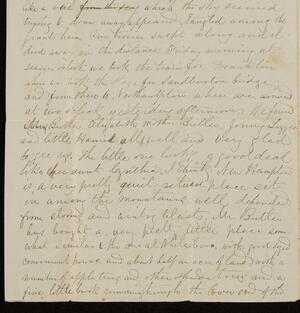 like a veil from the sea which the sky seemed
trying to draw away
giant hem Our train swept along and
died away in the distance Friday morning at
seven o'clock we took the train for Franklin
when we took the stage for Sanbornton bridge
and from there to Northampton where we arrived
at two o'clock yesterday afternoon We found
Mr Butler Elizabeth Mother Butler,
and little Hannah all well and very glad
to see us. The little one looks a good deal
like her aunt Cynthia I think New Hampton
is a very pretty quiet school place set
in among the mountains well defended
from storms and wintry blasts, Mr Butler
has bought a very pretty little place some
what similar to the one at Whitesboro, with good sized
convenient house and about half an acre of land with a
number of apple trees and other shade trees and a
fine little brook running through the lower end of the